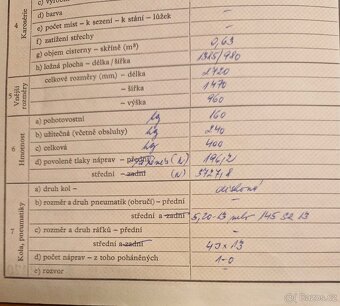 d) barva –
e) počet míst – k sezení – k stání – lůžek –
f) zatížení střechy –
g) objem cisterny – skříně (m³) 0,63
h) ložná plocha – délka/šířka 1385/980
4
Karosérie
celkové rozměry (mm) – délka 2420
– šířka 1470
– výška 960
5
Vnější rozměry
a) pohotovostní kg 160
b) užitečná (včetně obsluhy) kg 240
c) celková kg 400
d) povolené tlaky náprav – přední (N) 196,2
střední – zadní (N) 3727,8
6
Hmotnost
a) druh kol – disková
b) rozměr a druh pneumatik (obručí) – přední –
střední a zadní 5,20-13 nebo 145 SR 13
c) rozměr a druh ráfků – přední –
střední a zadní 4J x 13
d) počet náprav – z toho poháněných 1-0
e) rozvor –
7
Kola, pneumatiky
Bazos.cz